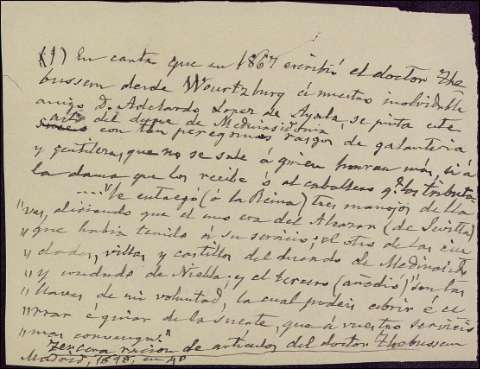 (1) En carta que en 1867 escribió el doctor The
bussem desde Wourtzburg á nuestro inolvidable
amigo D. Adelardo Lopez de Ayala, se pinta este
acto del duque de Medinasidonia
con tan peregrinos rasgos de galantería
y gentileza, que no se sabe á quien honran más, si á
la dama que los recibe ó al caballero q. los tributa
...."Le entregó (ó la Reina) tres manojos de lla
"ves, diciendo que el uno era del Alcazar (de Sevilla)
"que había tenido á su servicio; el otro de las ciu
"dades, villas y castillos del ducado de Medinasid.
"y condado de Niebla; y el tercero (añadió) "son las
"llaves de mi voluntad, la cual podeis abrir é ce
"rrar é guiar de la suerte, que á vuestro servicio
"mas convenga."
Tercera racion de articulos del doctor Thebussem
Madrid, 1898, en 4º